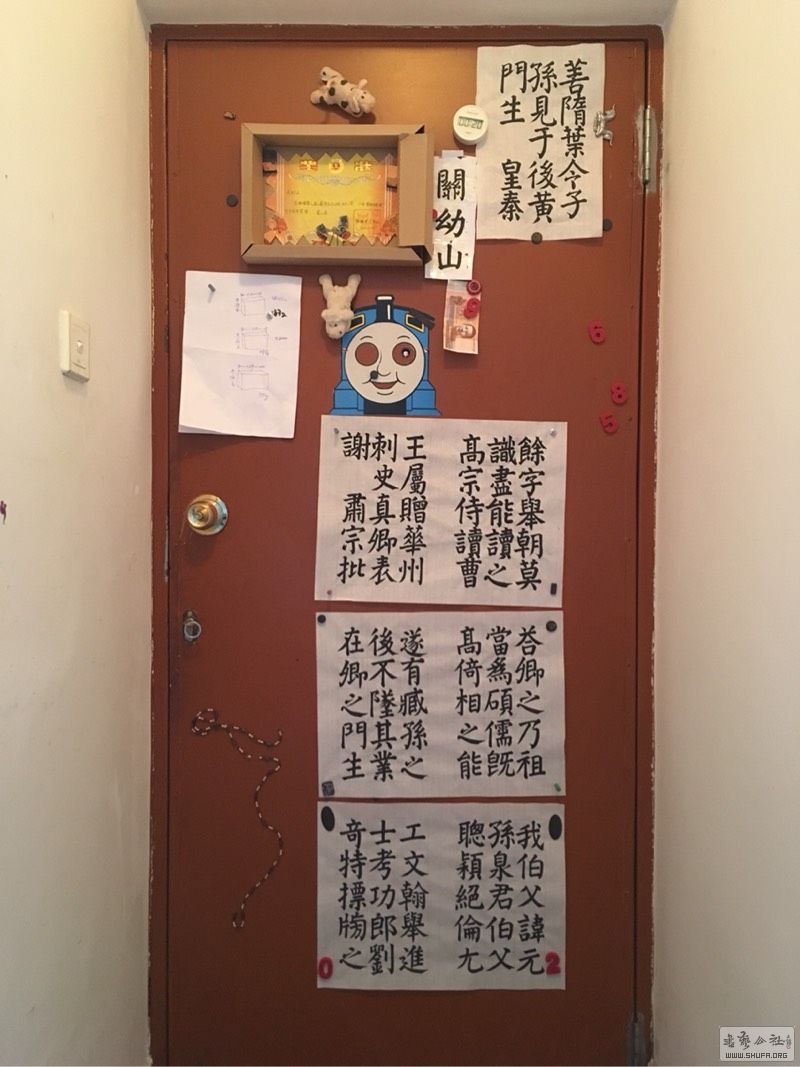 善隋葉令子
孫見于後黄
門生 皇秦
關幼山
6
8
5
餘字舉朝莫
識盡能讀之
髙宗侍讀曹
王屬贈華州
刺史真卿表
謝 肅宗批
荅卿之乃祖
當爲碩儒旣
髙倚相之能
遂有臧孫之
後不墜其業
在卿之門生
我伯父諱元
孫泉君伯父
聰穎絕倫尤
工文翰舉進
士考功郎劉
奇特摽牓之
2
0
書藝公社
WWW.SHUFA.ORG